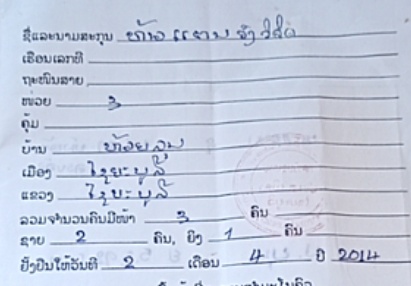 ຊື່ແລະນາມສະກຸນ ທ້າວ
ເຮືອນເລກທີ
ຖະໜົນສາຍ
ໜ່ວຍ 3
ຄຸ້ມ
ບ້ານ ຫ້ວຍລຸມ
ເມືອງ ໄຊຍະບູລີ
ແຂວງ ໄຊຍະບູລີ
ລວມຈຳນວນຄົນມີໜ້າ 3 ຄົນ
ຊາຍ 2 ຄົນ, ຍິງ 1 ຄົນ
ຢັ້ງຢືນໃຫ້ວັນທີ 2 ເດືອນ 4 ປີ 2014